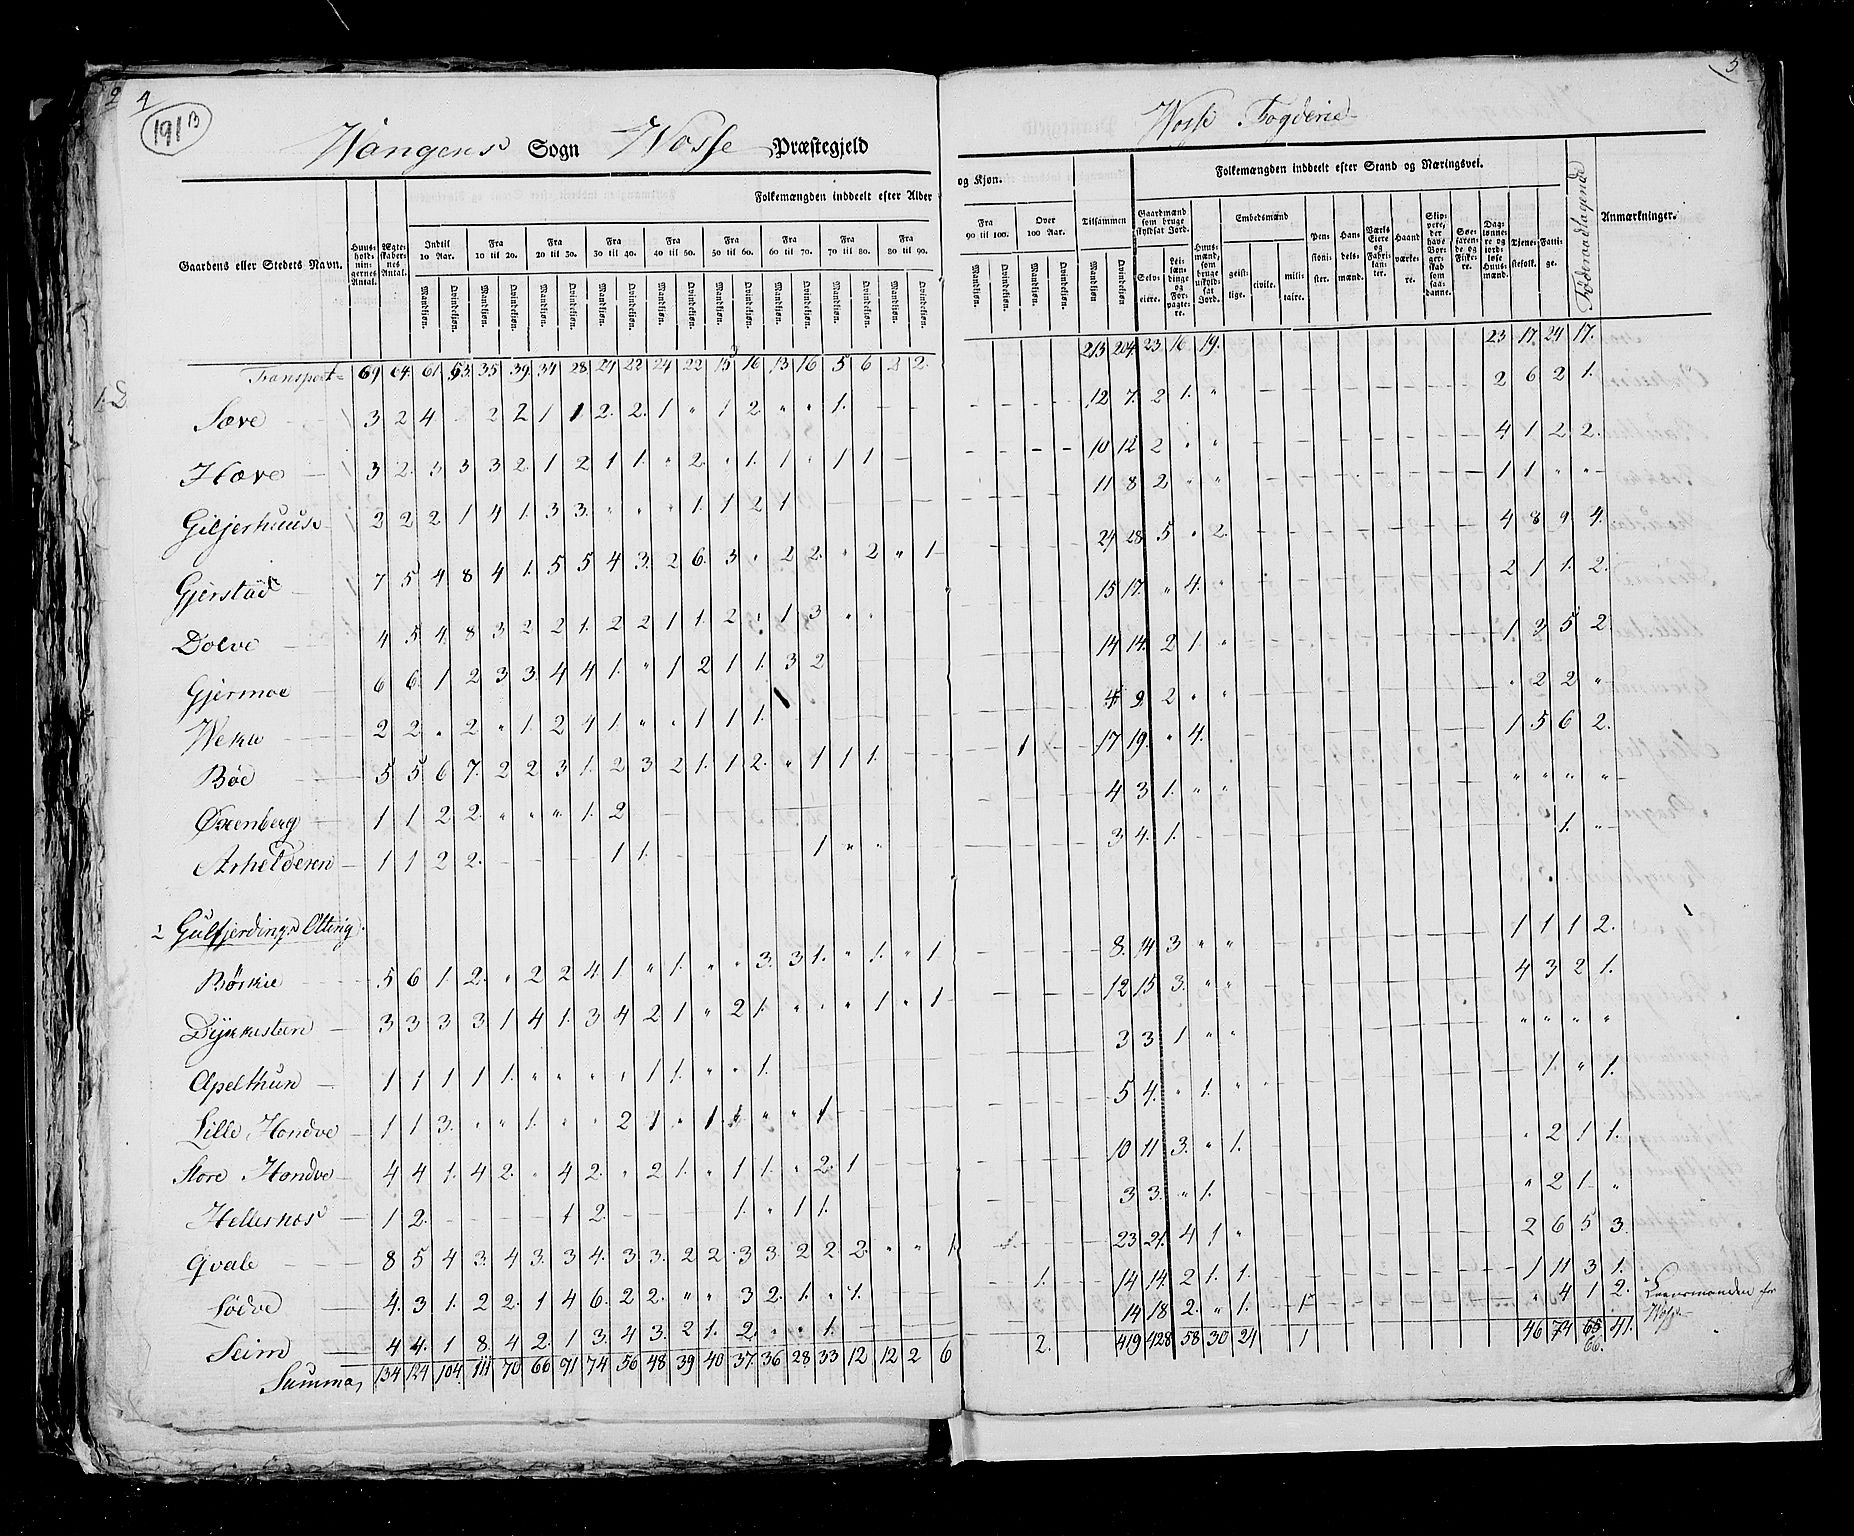 4
191 B
5
Wangens Sogn Wosse Præstegjeld
Wosse Fogderie
Gaardens eller Stedets Navn.
Huus-holdningernes Antal.
Ægteskabernes Antal.
Folkemængden inddeelt efter Alder
og Kjøn.
Indtil 10 Aar.
Fra 10 til 20.
Fra 20 til 30.
Fra 30 til 40.
Fra 40 til 50.
Fra 50 til 60.
Fra 60 til 70.
Fra 70 til 80.
Fra 80 til 90.
Fra 90 til 100.
Over 100 Aar.
Tilsammen
Mandkjøn. Qvindekjøn.
Folkemængden inddeelt efter Stand og Næringsvei.
Gaardmænd som bruge skyldsat Jord.
Selveiere.
Leilændinge og Forpagtere.
Huusmænd, som bruge uskyldsat Jord.
Embedsmænd
geistlige. civile. militaire.
Pensionister.
Handelsmænd.
Værks Eiere og Fabrikanter.
Haandværkere.
Søefarende og Fiskere.
Daglønnere og jordløse Huusmænd.
Tjenestefolk.
Fattige.
Føderaadtagende
Anmærkninger.
Transport 69 64. 61. 53. 35 39. 34 28 29 22 24 22 15 16 13 16 5 6 2 2. 213 204. 23 16 19. 23 17 24 17.
Sæve 3 2 4 2 2 1 1 2. 2. 1 " 1 2 " " 1. 12 7. 2 1. " 2 6 2 1.
Hæve 3 2. 3 3 3 2. 1 2 1 1. " 2. " 1. 1 " 1 1 10 12 2 " " 4 1 2 2.
Giljerhuus 2 2 2 1 4 1. 3 3. " " " 1. 1 2 1 11 8 2 " " 1 1 " "
Gjerstad 7 5 4 8 4 1. 5 5 4 3. 2 6. 3 " 2 2. " 2 " 1 29 28 5 " 2. 4 8 9. 4.
Dolve 4 5 4. 8 3 2 2 1. 2 2 1 1. 2 " 1 3 " " 15 17. " 4. " 2 1 1. 2.
Gjermoe 6 6. 1 2 3 3. 4 4 1. " 1 2 1 1. 3 2 14 14. 2 1. " 1 3 5 2
2 2. " 2 " 1. 2 4 1. " " 1 1 1. 4 9 2 " " " 2 2 "
Bøe 5 5 6 7. 2 2 3 1. 2 3 2 1. 1 2. " 1 1 1. 1 17 19. " 4. 1 5 6 2.
Øxenberg 1 1 2 2. " " " 1. 2 4 3 1. " " " " " "
Arhelderen 1 1 2 2. 1 1. 1 " " 3 4. 1. 1. "
2 Gulfjerdings Otting
Børkie 5 6 1 2. " 2 2 4. 1 " 1. " " 3. 3 1. " 1. " 1 8. 14 3 " " 1 1 1 2.
Dykkesteen 3 3 3 3. 1 4 1. 3 4 2 1 " 2 1. " " " 1 " 1 12 15 3. " " 4 3 2 1.
Apelthun 1 1 1 1 1. " " " " 1 1. " " 1. 3 3 1 " " " " " "
Lille Hondve 1 1 3. " " 1. " " 2 1 " 1 1 " " 1 5 4. " 1. " 1. " 1.
Store Hondve 4 4 1. 4 2. " 4 2. " 2 1. " 1 1. " 2. 1 10 11 3. " 1. " 2 1 1.
Hellesnæs 1 2. 1 2. 1. " 1 1. 3 3. " 1. " 2 1. "
Qvale 8 5 4 3. 4 3. 3 4. 3 3. 2 2. 3 3. 2 2 2. " " 1. 23 21. 4 1 " 2 6 5 3.
Lødve 4. 3 1. 2 2. 1 4 6. 2 2. " " 3 2. 1. " 1. 1. 14 14. 2 1. 1. 1 11 3 1.
Seim 4 4. 1 8. 4 2. 1 3. 4 3. 2 1. 2. " " 1. 14 18 2. " 1. 1 " 4 1 2. Leensmanden for
Wosse
Summa 134 124 104. 111 70 66 91 74 56 48 39 40 37. 36 28 33 12 12 2 6 2. 419 428 58 30 24 1 46 74 65 41.
66.